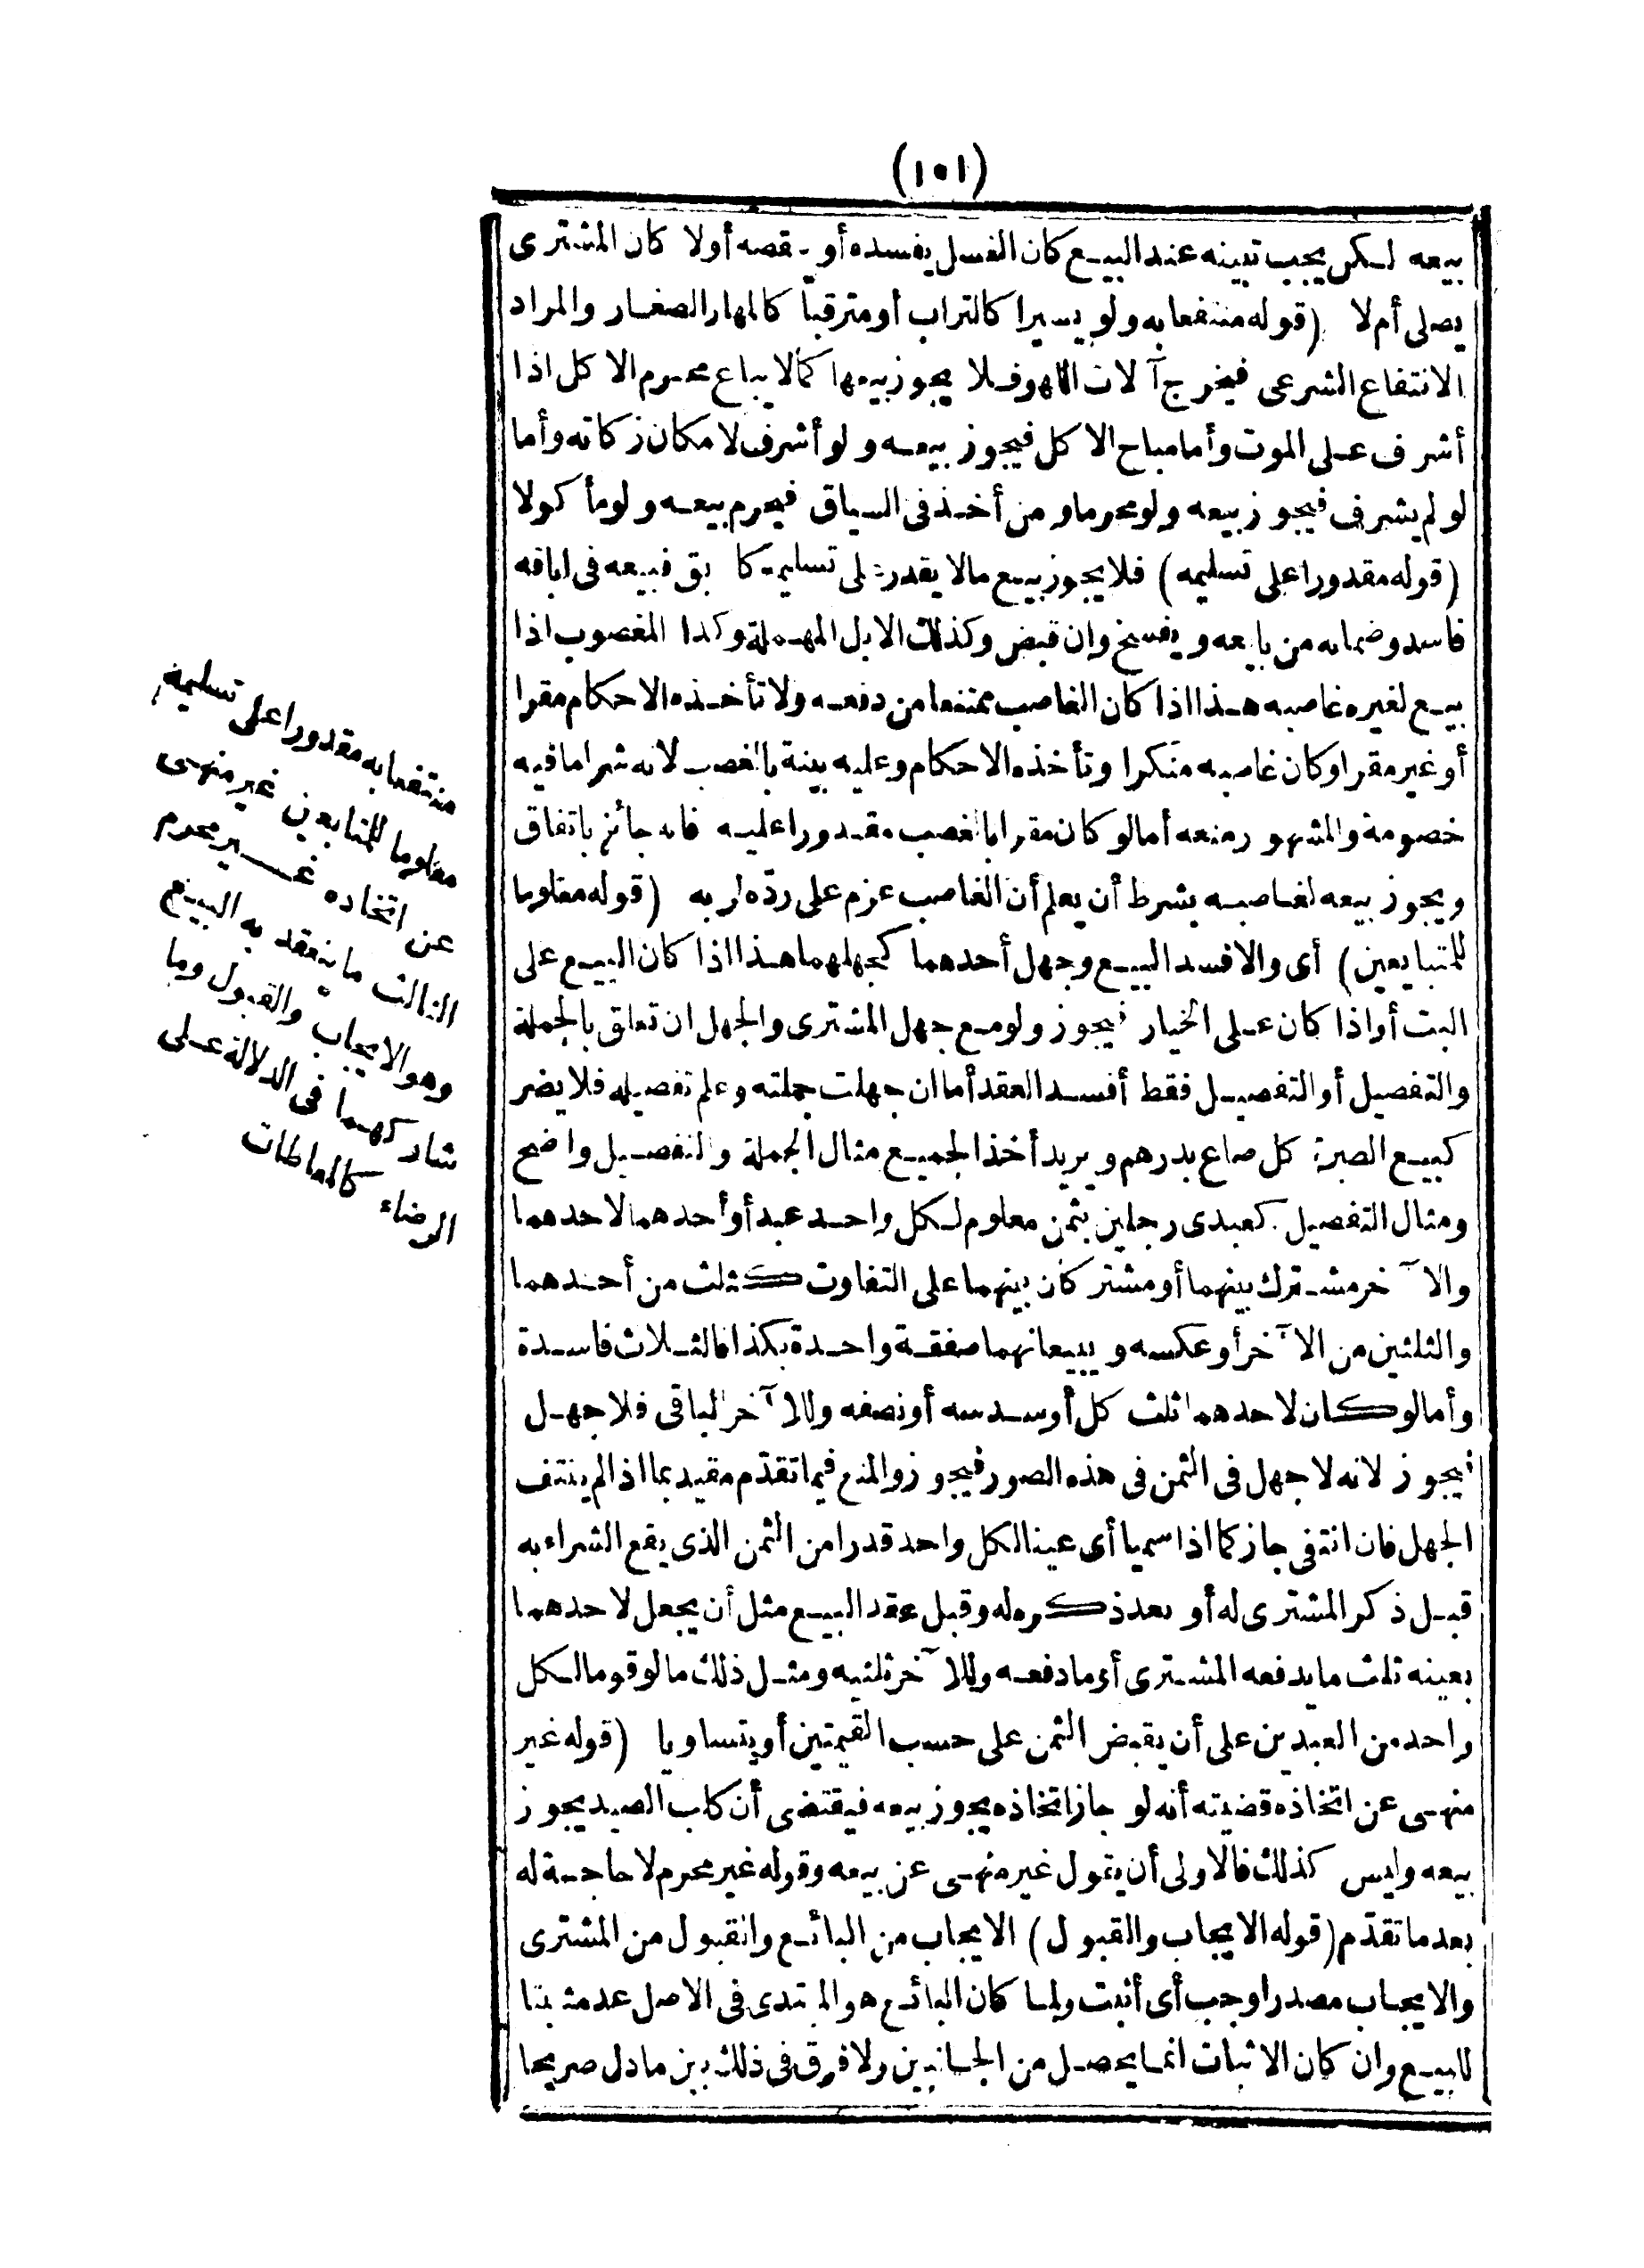 (١٥١)
بيعه لكن يجب تبيينه عند البيع كان الغسل يفسده أو ينقصه أولا كان المشترى
يصلى أم لا (قوله منتفعا به ولو يسيرا كالتراب أو مترقبا كالمهار الصغار والمراد
الانتفاع الشرعى فيخرج آلات اللهو فلا يجوز بيعها كما لا يباع محرم الاكل اذا
أشرف على الموت وأما مباح الاكل فيجوز بيعه ولو أشرف لامكان زكاته وأما
لو لم يشرف فيجوز بيعه ولو محرما ومن أخذ فى السياق فيحرم بيعه ولو مأكولا
(قوله مقدورا على تسليمه) فلا يجوز بيع مالا يقدر على تسليمه كآبق فبيعه فى اباقه
فاسد وضمانه من بايعه ويفسخ وان قبض وكذلك الابل المهملة وكذا المغصوب اذا
بيع لغير غاصبه هذا اذا كان الغاصب ممتنعا من دفعه ولا تأخذه الاحكام مقرا
أو غير مقر اوكان غاصبه منكرا وتأخذه الاحكام وعليه بينة بالغصب لانه شراء مافيه
خصومة والمشهور منعه أما لو كان مقرا بالغصب مقدورا عليه فانه جائز باتفاق
ويجوز بيعه لغاصبه بشرط أن يعلم أن الغاصب عزم على ردّه لربه (قوله معلوما
للمتبايعين) أى والا فسد البيع وجهل أحدهما كجهلهما هذا اذا كان البيع على
البت أو اذا كان على الخيار فيجوز ولو مع جهل المشترى والجهل ان تعلق بالجملة
والتفصيل أو التفصيل فقط أفسد العقد أما ان جهلت جملته وعلم تفصيله فلا يضر
كبيع الصبرة كل صاع بدرهم ويريد أخذ الجميع مثال الجملة والتفصيل واضح
ومثال التفصيل كعبدى رجلين بثمن معلوم لكل واحد عبد أو أحدهما لاحدهما
والآخر مشترك بينهما أو مشتركان بينهما على التفاوت كثلث من أحدهما
والثلثين من الآخر أو عكسه ويبيعانهما صفقة واحدة بكذا فالثلاث فاسدة
وأما لو كان لاحدهما ثلث كل أو سدسه أو نصفه وللآخر الباقى فلا جهل
فيجوز لانه لا جهل فى الثمن فى هذه الصور فيجوز والمنع فيما تقدّم مقيد بما اذا لم ينتف
الجهل فان انتفى جاز كما اذا سميا أى عينا لكل واحد قدرا من الثمن الذى يقع الشراء به
قبل ذكر المشترى له أو بعد ذكره له وقبل عقد البيع مثل أن يجعل لاحدهما
بعينه ثلث ما يدفعه المشترى أو ما دفعه وللآخر ثلثيه ومثل ذلك ما لو قوما لكل
واحد من العبدين على أن يقبض الثمن على حسب القيمتين أو يتساويا (قوله غير
منهى عن اتخاذه قضيته أنه لو جاز اتخاذه يجوز بيعه فيقتضى أن كلب الصيد يجوز
بيعه وليس كذلك فالاولى أن يقول غير منهى عن بيعه وقوله غير محرم لا حاجة له
بعد ما تقدّم (قوله الايجاب والقبول) الايجاب من البائع والقبول من المشترى
والايجاب مصدر اوجب أى أثبت ولما كان البائع هو المبتدى فى الاصل عد مثبتا
للبيع وان كان الاثبات انما يحصل من الجانبين ولا فرق فى ذلك بين ما دل صريحا
منتفعا به مقدورا على تسليمه
معلوما للمتابعين غير منهى
عن اتخاذه غير محرم
الثالث ما ينعقد به البيع
وهو الايجاب والقبول وما
شاركهما فى الدلالة على
الرضاء كالمعاطات